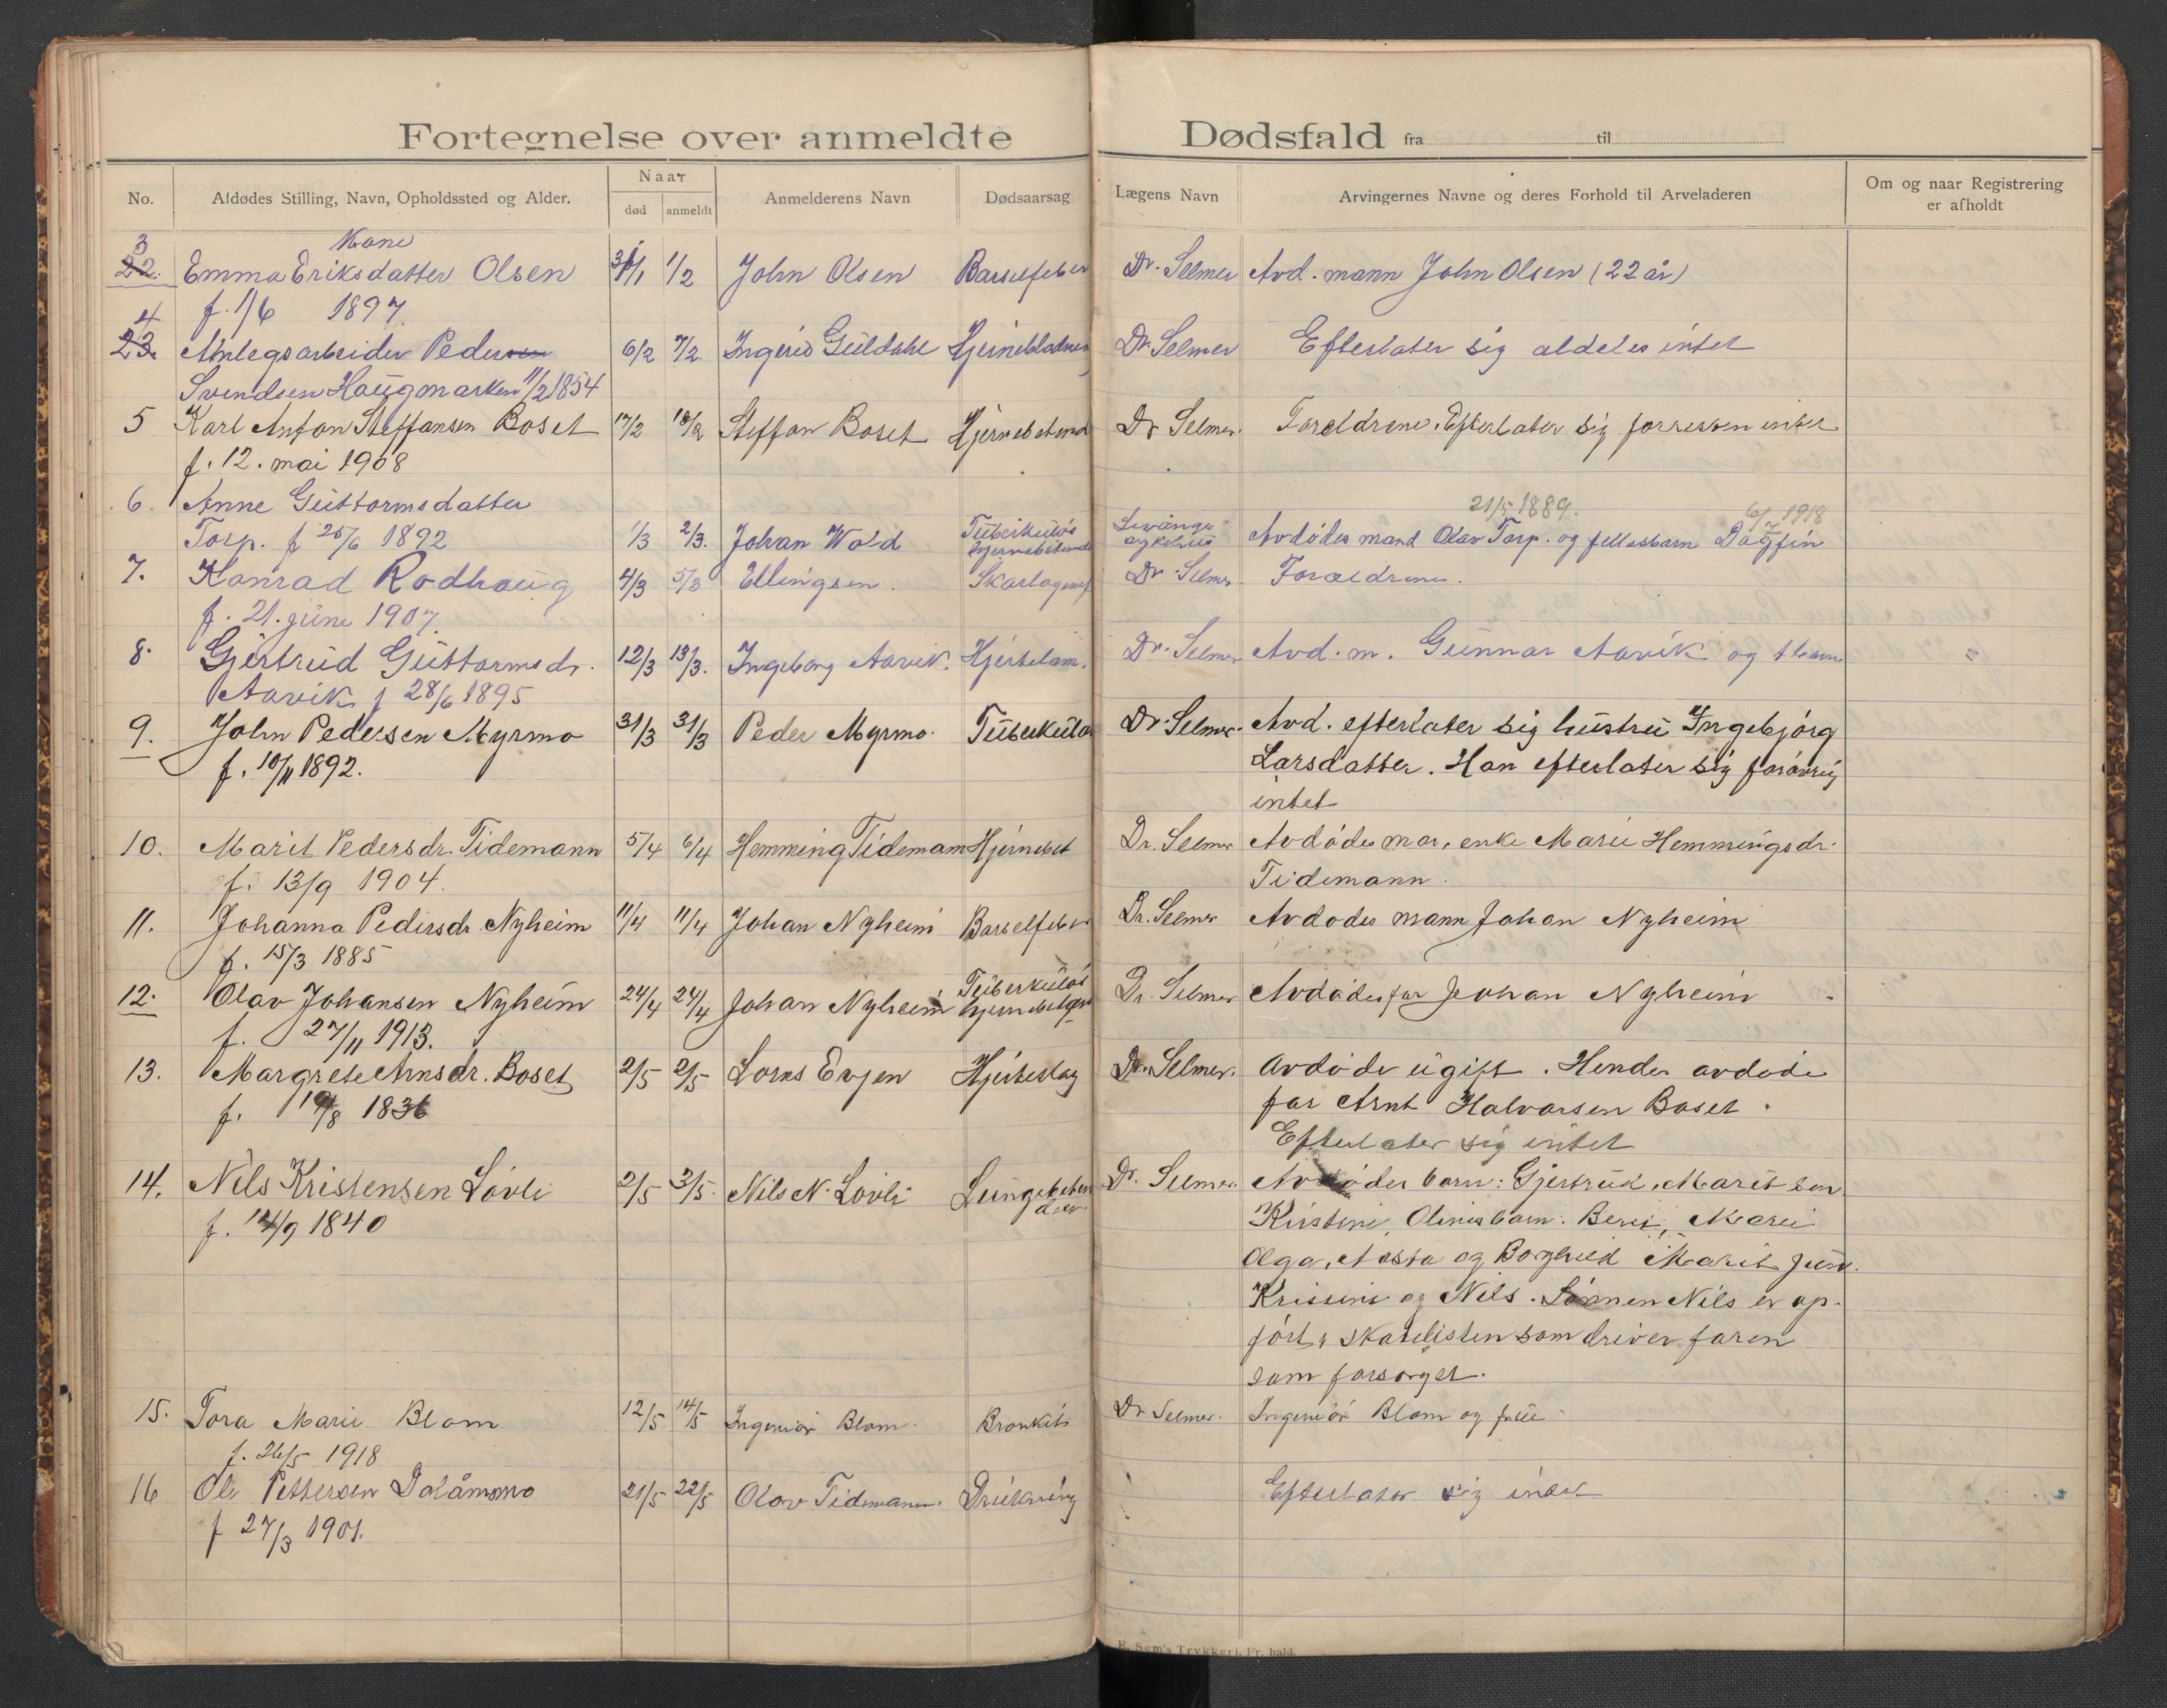 Fortegnelse over anmeldte Dødsfald fra til
No. Afdødes Stilling, Navn, Opholdssted og Alder. Naar død anmeldt Anmelderens Navn Dødsaarsag Lægens Navn Arvingernes Navne og deres Forhold til Arveladeren Om og naar Registrering er afholdt
3 Kone
22. Emma Eriksdatter Olsen 31/1 1/2 John Olsen Barselfeber Dr. Selmer Avd. mann John Olsen (22 år)
f. 1/6 1897
4
23. Anlegsarbeider Pedersen 6/2 7/2 Ingerid Guldahl Hjerneblødnen Dr. Selmer Efterlater sig aldeles intet
Svendsen Haugmarken 11/2 1854
5 Karl Anton Steffansen Boset 17/2 18/2 Steffan Boset Hjernebetend Dr Selmer. Foreldrene. Efterlater sig forresten intet
f. 12. mai 1908
6. Anne Guttormsdatter 21/5 1889. 6/7 1918
Torp. f 25/6 1892 1/3 2/3. Johan Wold Tuberkuløs hjernebetende Levanger sykehus Avdødes mand Olav Torp. og fellesbarn Dagfin
7. Konrad Rodhaug 4/3 5/3 Ellingsen. Skarlagensf Dr Selmer. Forældrene.
f. 21. june 1907
8. Gjertrud Guttormsdr. 12/3 13/3. Ingeborg Aavik. Hjertelam. Dr. Selmer Avd. m. Gunnar Aavik og 1 barn
Aavik f 28/6 1895
9. John Pedersen Myrmo 31/3 31/3 Peder Myrmo. Tuberkulos Dr. Selmer. Avd. efterlater sig hustru Ingebjørg
f. 10/11 1892. Larsdatter. Han efterlater sig forøvrig
intet
10. Marit Pedersdr. Tidemann 5/4 6/4 Hemming Tidemann Hjernebet Dr. Selmer Avdødes mor, enke Marie Hemmingsdr.
f. 13/9 1904. Tidemann.
11. Johanna Pedersdr. Nyheim 11/4 11/4 Johan Nyheim Barselfeber Dr. Selmer Avdødes mann Johan Nyheim
f. 15/3 1885
12. Olav Johansen Nyheim 24/4 24/4 Johan Nyheim Tuberkuløs hjernebetæn Dr. Selmer Avdødes far Johan Nyheim
f. 27/11 1913.
13. Margrete Arnsdr. Boset 2/5 2/5 Lorns Evjen Hjerteslag Dr. Selmer. Avdøde ugift. Hendes avdøde
f. 19/8 1836 far Arnt Halvorsen Boset.
Efterlater sig intet
14. Nils Kristensen Løvli 2/5 3/5. Nils N. Løvli Lungebeten der. Dr. Selmer. Avdødes barn: Gjertrud, Marit sen.
f. 14/9 1840 Kristine, Olines barn: Beret, Marie
Olga, Aasta og Borghild Marit jun.
Kristine og Nils. Sønnen Nils er op-
ført i skatelisten som driver faren
som forsørget.
15. Tora Marie Blom 12/5 14/5 Ingeniør Blom. Bronkit Dr Selmer. Ingeniør Blom og frue
f. 26/5 1918
16 Ole Pettersen Dalåmo 21/5 22/5 Olav Tidemann. Drukning Efterlater sig intet
f 27/3 1901.
E. Sem's Trykkeri, Fr. hald.